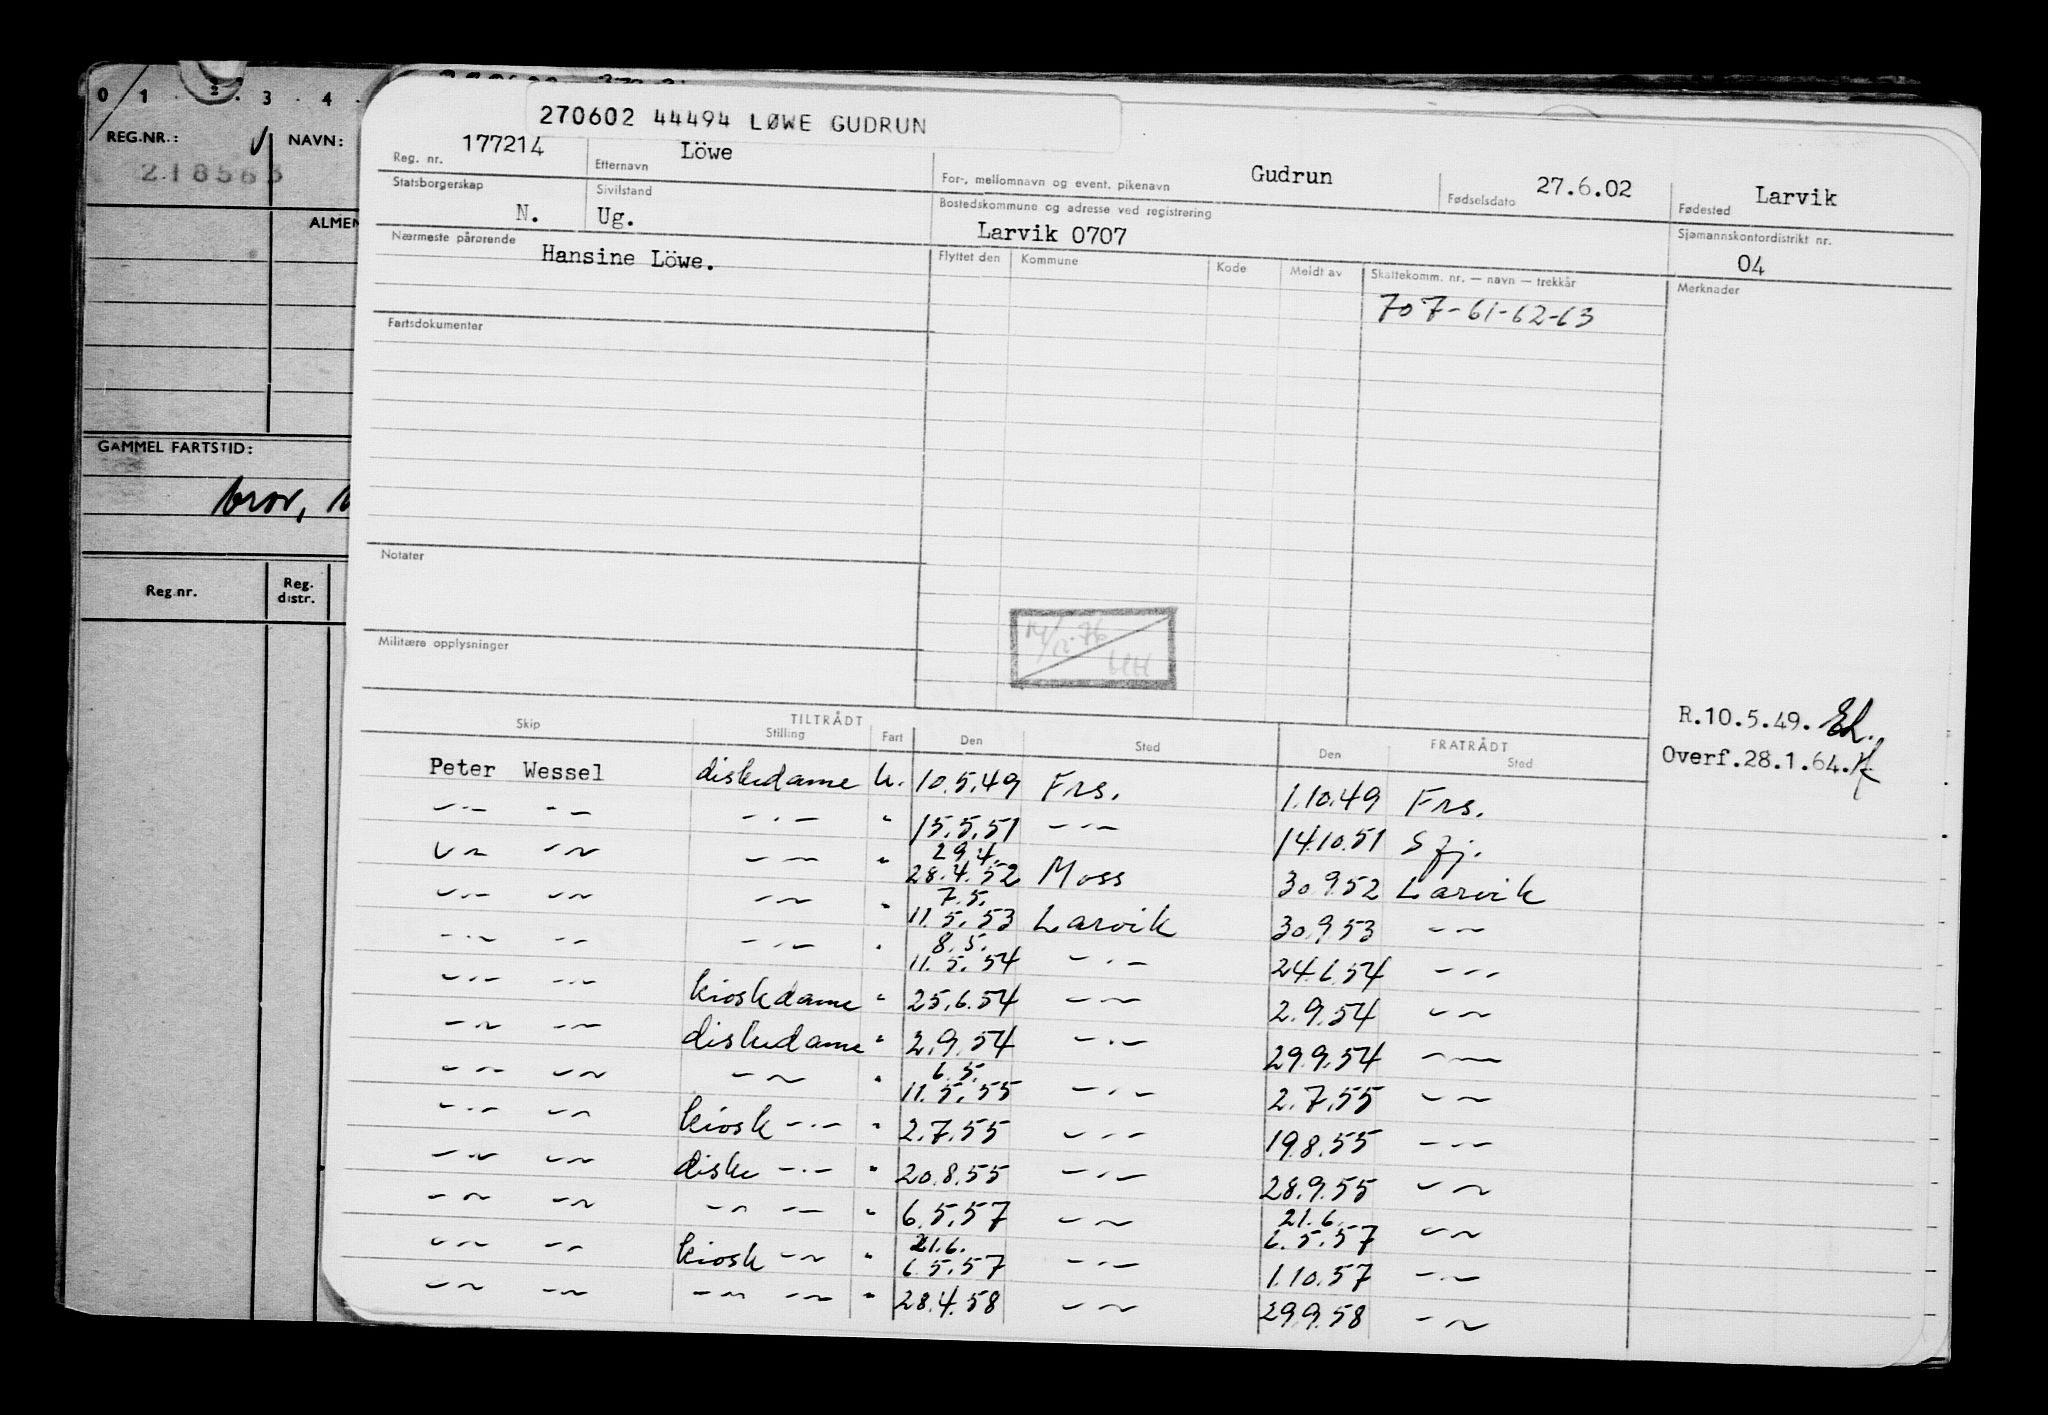 0 1 2 3 4
REG.NR.: NAVN:
218563
ALMEN
GAMMEL FARTSTID:
bror,
Reg.nr. Reg. distr.
270602 44494 LØWE GUDRUN
Reg. nr. 177214 Etternavn Löwe For-, mellomnavn og event. pikenavn Gudrun Fødselsdato 27.6.02 Fødested Larvik
Statsborgerskap N. Sivilstand Ug. Bostedskommune og adresse ved registrering Larvik 0707 Sjømannskontordistrikt nr. 04
Nærmeste pårørende Hansine Löwe. Flyttet den Kommune Kode Meldt av Skattekomm. nr. — navn — trekkår Merknader
707-61-62-63
Fartsdokumenter
Notater
Militære opplysninger
R.10.5.49.
Overf.28.1.64.
TILTRÅDT FRATRÅDT
Skip Stilling Fart Den Sted Den Sted
Peter Wessel diskedame u. 10.5.49 Frs. 1.10.49 Frs.
-"- -"- -"- " 15.5.51 -"- 14.10.51 Sfj.
29.4.
-"- -"- -"- " 28.4.52 Moss 30.9.52 Larvik
7.5.
-"- -"- -"- " 11.5.53 Larvik 30.9.53 -"-
8.5.
-"- -"- -"- " 11.5.54 -"- 24.6.54 -"-
-"- -"- kioskdame " 25.6.54 -"- 2.9.54 -"-
-"- -"- diskedame " 2.9.54 -"- 29.9.54 -"-
6.5.
-"- -"- -"- " 11.5.55 -"- 2.7.55 -"-
-"- -"- kiosk -"- " 2.7.55 -"- 19.8.55 -"-
-"- -"- diske -"- " 20.8.55 -"- 28.9.55 -"-
21.6.
-"- -"- -"- -"- " 6.5.57 -"- 6.5.57 -"-
21.6.
-"- -"- kiosk -"- " 6.5.57 -"- 1.10.57 -"-
-"- -"- -"- -"- " 28.4.58 -"- 29.9.58 -"-